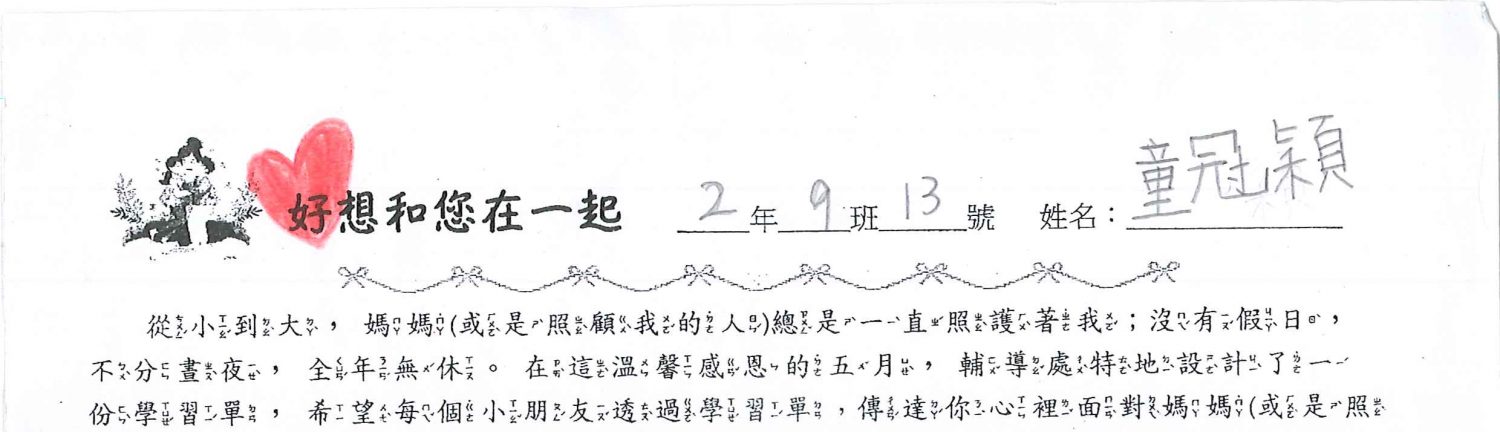 好想和您在一起 2年9班13號 姓名：童冠穎
從小到大，媽媽(或是照顧我的人)總是一直照護著我；沒有假日，
不分晝夜，全年無休。在這溫馨感恩的五月，輔導處特地設計了一
份學習單，希望每個小朋友透過學習單，傳達你心裡面對媽媽(或是照